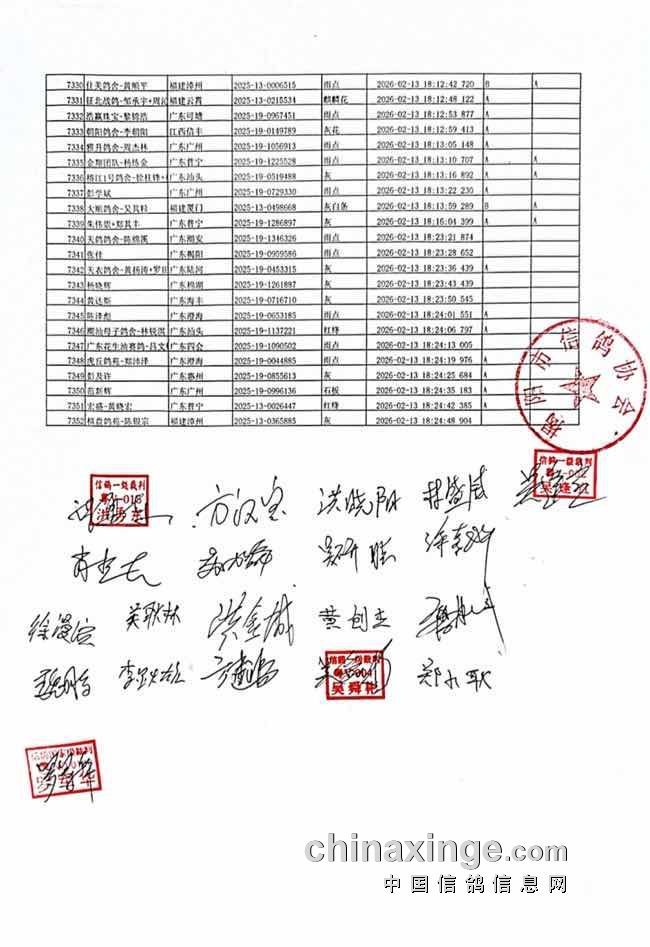 7330 佳美鸽舍-黄顺平 福建漳州 2025-13-0006515 雨点 2026-02-13 18:12:42 720 B A
7331 征北战鸽-邹承宇+周 福建云霄 2025-13-0215534 麒麟花 2026-02-13 18:12:48 122 A
7332 浩赢珠宝-黎锦浩 广东可塘 2025-19-0967451 雨点 2026-02-13 18:12:53 877 A
7333 朝阳鸽舍-李朝阳 江西信丰 2025-19-0149789 灰花 2026-02-13 18:12:59 413 A
7334 雅丹鸽舍-周杰林 广东广州 2025-19-1056913 雨点 2026-02-13 18:13:05 148 A
7335 金翔团队-杨炼金 广东普宁 2025-19-1225528 雨点 2026-02-13 18:13:10 707 A A
7336 榕江1号鸽舍-徐桂锋+ 广东汕头 2025-19-0519488 灰 2026-02-13 18:13:16 892 A A
7337 彭学斌 广东广州 2025-19-0729330 雨点 2026-02-13 18:13:22 230 A
7338 大顺鸽舍-吴其 福建厦门 2025-13-0498668 灰白条 2026-02-13 18:13:59 289 B A
7339 朱伟宏+郑其丰 广东普宁 2025-19-1286897 灰 2026-02-13 18:16:04 399 A A
7340 天鸽鸽舍-陈 广东潮安 2025-19-1346326 雨点 2026-02-13 18:23:21 874
7341 张佳 广东揭阳 2025-19-0959586 雨点 2026-02-13 18:23:28 652
7342 天衣鸽舍-黄杨涛+罗 广东陆河 2025-19-0453315 灰 2026-02-13 18:23:36 439 A
7343 杨晓辉 广东棉湖 2025-19-1261897 灰 2026-02-13 18:23:43 439
7344 黄达斯 广东海丰 2025-19-0716710 灰 2026-02-13 18:23:50 545
7345 陈泽彪 广东澄海 2025-19-0653185 雨点 2026-02-13 18:24:01 551 A
7346 潮汕母子鸽舍-林锐 广东汕头 2025-19-1137221 红绛 2026-02-13 18:24:06 797 A
7347 广东花生油赛鸽-吕文 广东四会 2025-19-1090502 雨点 2026-02-13 18:24:13 005
7348 虎丘鸽苑-郑沛泽 广东澄海 2025-19-0044885 雨点 2026-02-13 18:24:19 976 A
7349 彭及许 广东惠州 2025-19-0855613 灰 2026-02-13 18:24:25 684 A
7350 范新辉 广东广州 2025-19-0996136 石板 2026-02-13 18:24:35 183 A
7351 宏盛-黄晓宏 广东普宁 2025-13-0026447 红绛 2026-02-13 18:24:42 385 A
7352 棋盘鸽苑-陈银宗 福建漳州 2025-13-0365885 灰 2026-02-13 18:24:48 904
揭阳市信鸽协会
信鸽一级裁判
信鸽一级裁判
方汉宝 洪晓阳 林盛
徐漫 吴耿林 洪金城 黄创杰
信鸽一级裁判
吴舜彬
chinaxinge.com
中国信鸽信息网